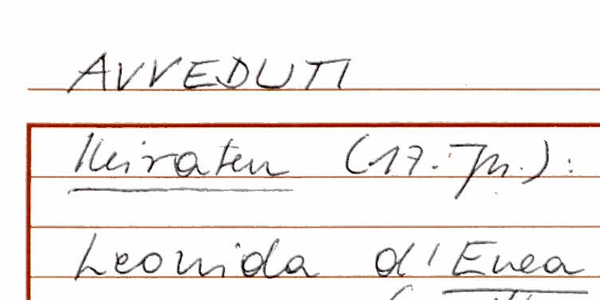 AVVEDUTI
Heiraten (17. Jh.):
Leonida d'Enea